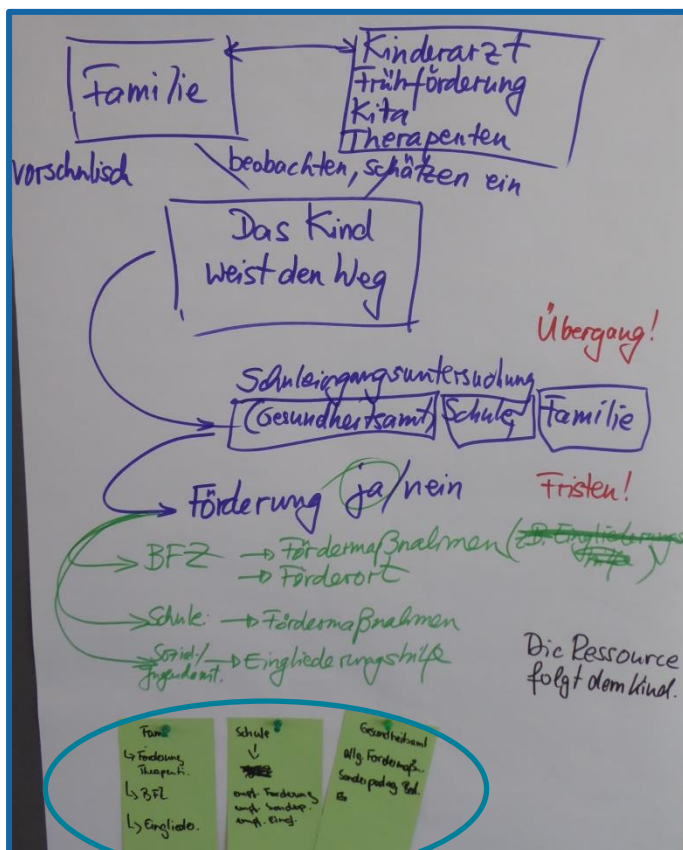 Familie
Kinderarzt
Frühförderung
Kita
Therapenten
vorschulisch
beobachten, schätzen ein
Das Kind
weist den Weg
Übergang!
Schuleingangsuntersuchung
(Gesundheitsamt) Schule, Familie
Förderung ja/nein
Fristen!
BFZ → Fördermaßnahmen (z.B. Eingliederungs
hilfe)
→ Förderort
Schule → Fördermaßnahmen
Sozial-/ → Eingliederungshilfe
Jugendamt.
Die Ressource
folgt dem Kind.
Fam
↳ Förderung
Therapeuti.
↳ BFZ
↳ Einglieder.
Schule
↓
empf. Förderung
empf. Sonderp.
empf. Eingl.
Gesundheitsamt
allg. Fördermaßn.
Sonderpädag.